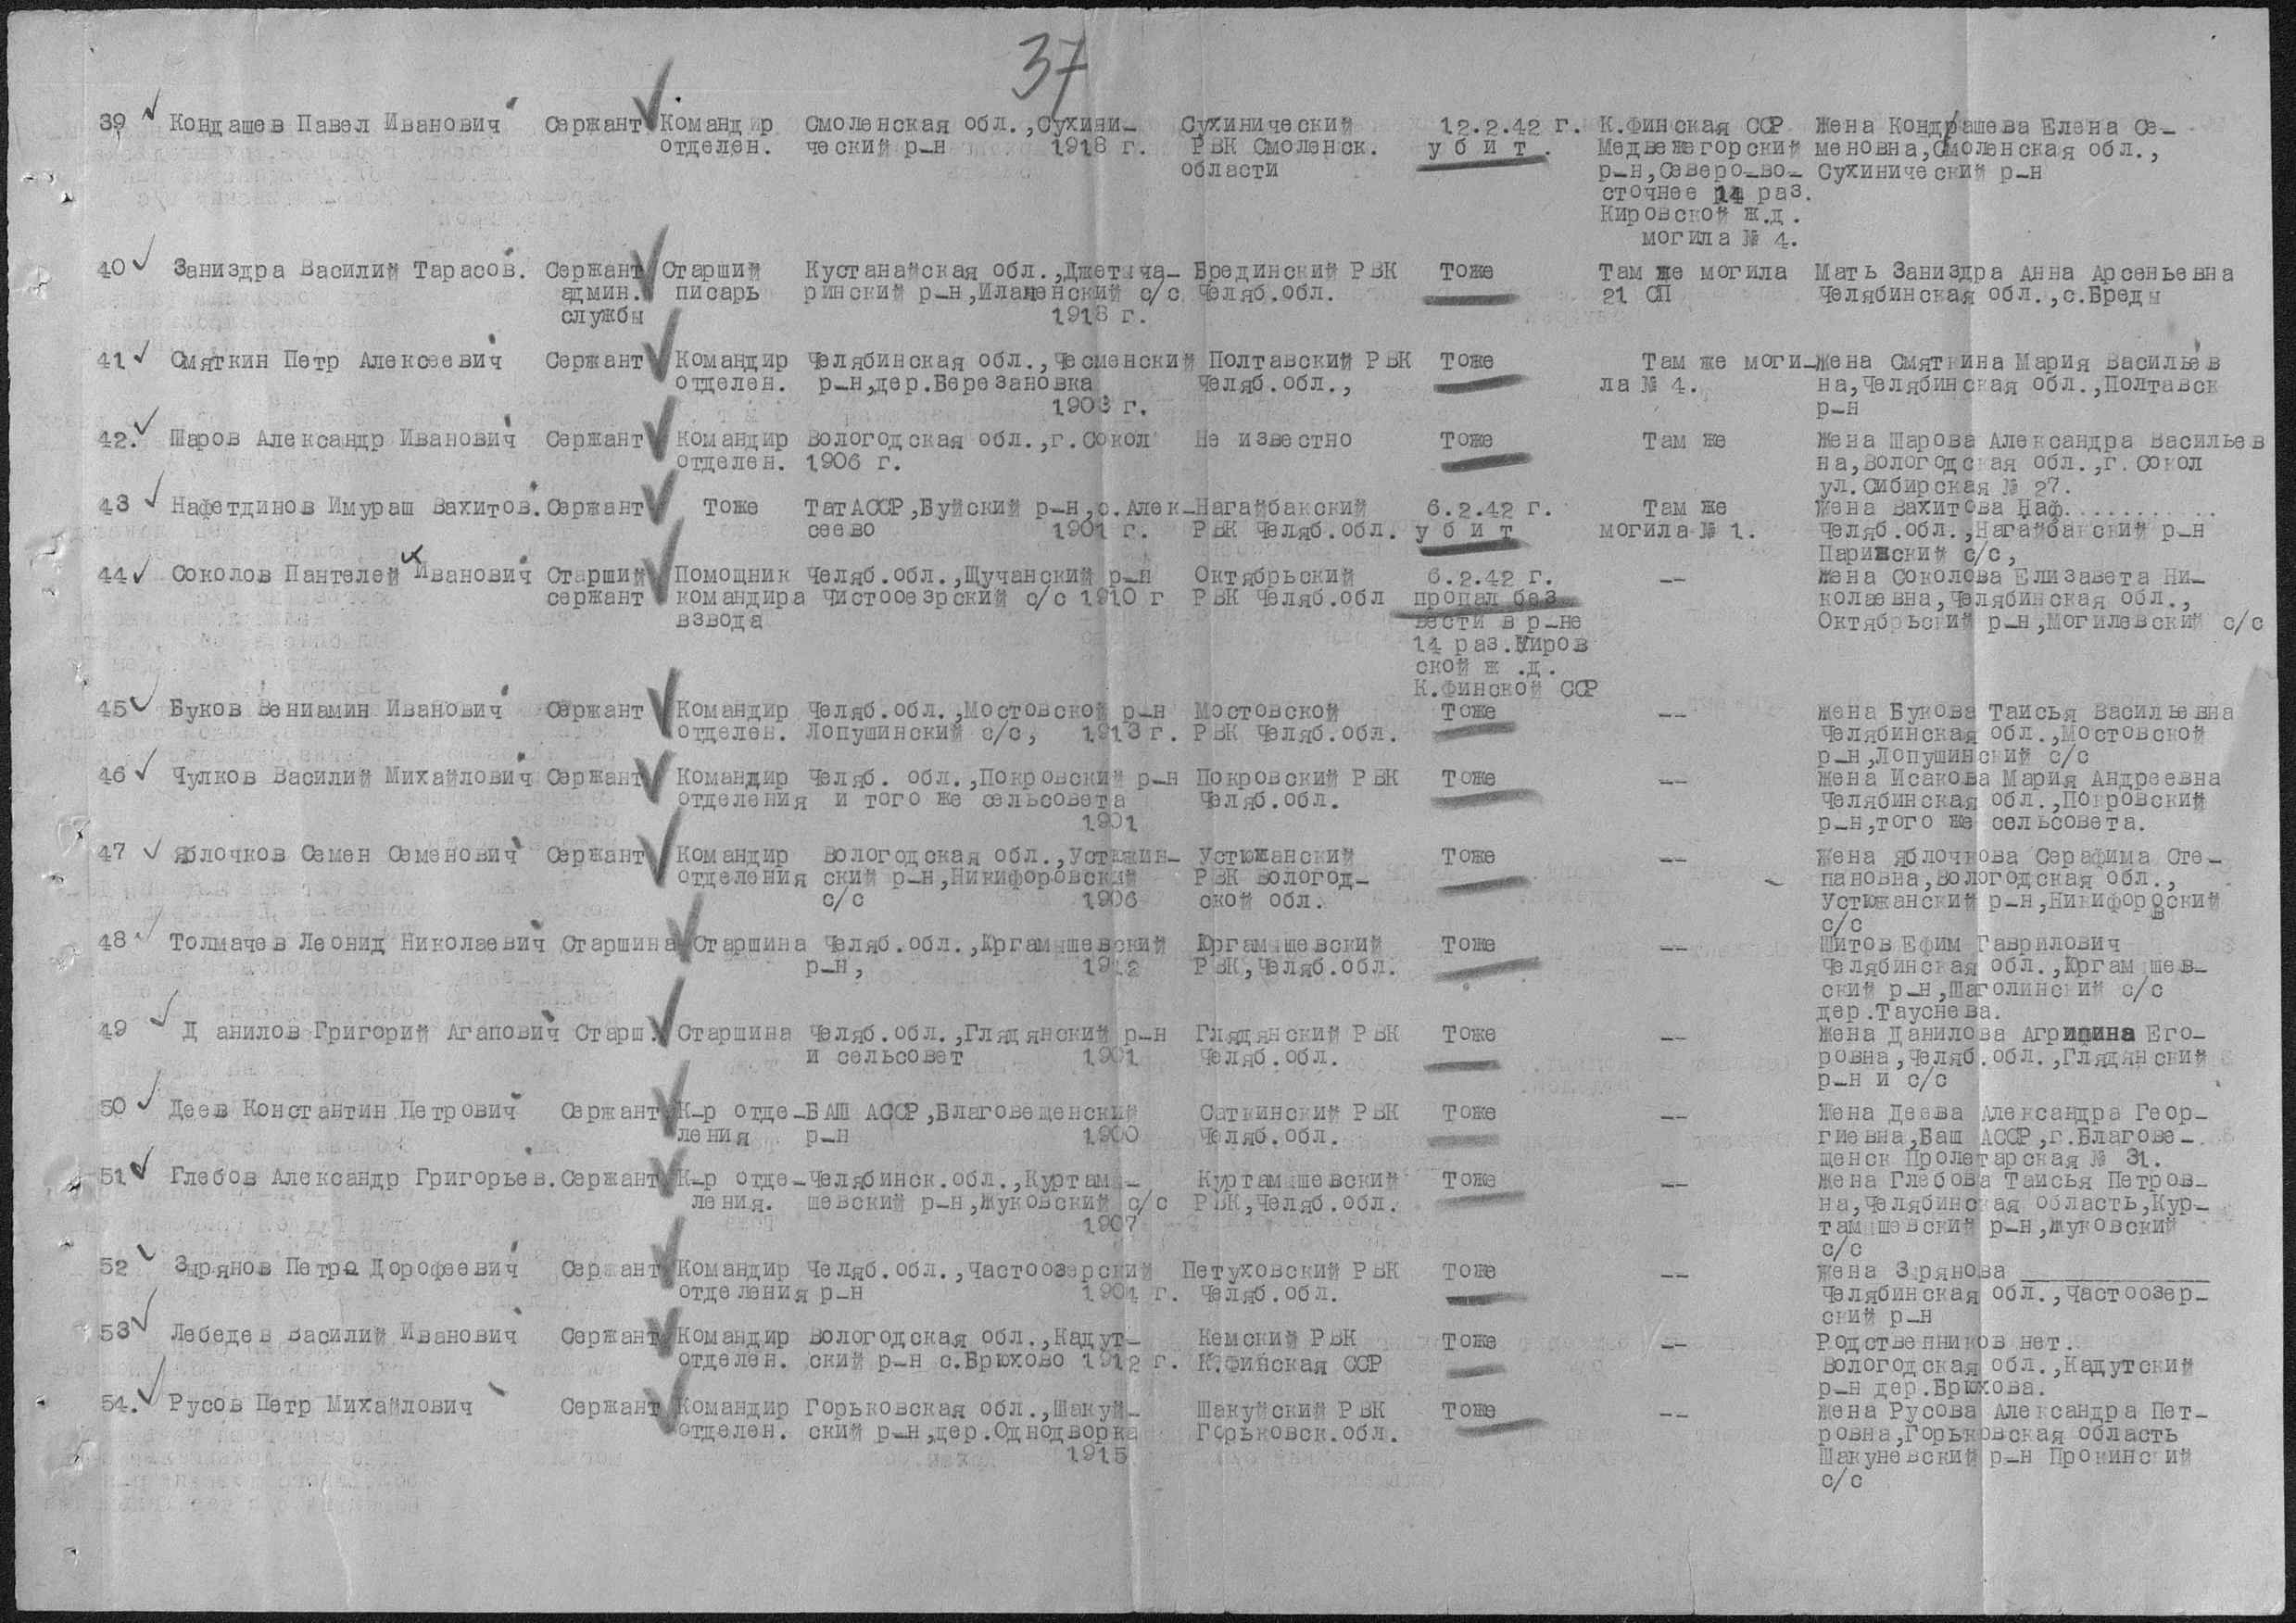 37
39 Кондашев Павел Иванович Сержант Командир Смоленская обл.,Сухини- Сухинический 12.2.42 г. К.Финская ССР Жена Кондрашева Елена Се-
отделен. ческий р-н 1918 г. РВК Смоленск. убит. Медвежегорский меновна,Смоленская обл.,
области р-н,Северо-во- Сухинический р-н
сточнее 14 раз.
Кировской ж.д.
могила № 4.
40 Заниздра Василий Тарасов. Сержант Старший Кустанайская обл.,Джетыга- Брединский РВК Тоже Там же могила Мать Заниздра Анна Арсеньевна
админ. писарь ринский р-н, с/с Челяб.обл. 21 СП Челябинская обл.,с.Бреды
службы 1918 г.
41 Смяткин Петр Алексеевич Сержант Командир Челябинская обл.,Чесменский Полтавский РВК Тоже Там же моги- Жена Смяткина Мария Васильев
отделен. р-н,дер.Березановка Челяб.обл., ла № 4. на,Челябинская обл.,Полтавск
1903 г. р-н
42. Шаров Александр Иванович Сержант Командир Вологодская обл.,г.Сокол Не известно Тоже Там же Жена Шарова Александра Васильев
отделен. 1906 г. на,Вологодская обл.,г.Сокол
ул.Сибирская № 27.
43 Нафетдинов Имураш Вахитов. Сержант Тоже ТатАССР,Буйский р-н,с.Алек- Нагайбакский 6.2.42 г. Там же Жена Вахитова Наф...........
сеево 1901 г. РВК Челяб.обл. убит могила № 1. Челяб.обл.,Нагайбакский р-н
Парижский с/с,
44 Соколов Пантелей Иванович Старший Помощник Челяб.обл.,Щучанский р-н Октябрьский 6.2.42 г. -- Жена Соколова Елизавета Ни-
сержант командира Чистооезрский с/с 1910 г РВК Челяб.обл пропал без колаевна,Челябинская обл.,
взвода вести в р-не Октябрьский р-н,Могилевский с/с
14 раз.Киров
ской ж.д.
К.Финской ССР
45 Буков Вениамин Иванович Сержант Командир Челяб.обл.,Мостовской р-н Мостовской Тоже -- Жена Букова Таисья Васильевна
отделен. Лопушинский с/с, 1913 г. РВК Челяб.обл. Челябинская обл.,Мостовской
р-н,Лопушинский с/с
46 Чулков Василий Михайлович Сержант Командир Челяб. обл.,Покровский р-н Покровский РВК Тоже -- Жена Исакова Мария Андреевна
отделения и того же сельсовета Челяб.обл. Челябинская обл.,Покровский
1901 р-н,того же сельсовета.
47 Яблочков Семен Семенович Сержант Командир Вологодская обл.,Устюжин- Устюжанский Тоже -- Жена Яблочкова Серафима Сте-
отделения ский р-н,Никифоровский РВК Вологод- пановна,Вологодская обл.,
с/с 1906 ской обл. Устюжанский р-н,Никифоровский
с/с
48 Толмачев Леонид Николаевич Старшина Старшина Челяб.обл.,Юргамышевский Юргамышевский Тоже -- Шитов Ефим Гаврилович
р-н, 1912 РВК,Челяб.обл. Челябинская обл.,Юргамышев-
ский р-н,Шаголинский с/с
дер.Тауснева.
49 Данилов Григорий Агапович Старш. Старшина Челяб.обл.,Глядянский р-н Глядянский РВК Тоже -- Жена Данилова Агрипина Его-
и сельсовет 1901 Челяб.обл. ровна,Челяб.обл.,Глядянский
р-н и с/с
50 Деев Константин Петрович Сержант К-р отде- БАШ АССР,Благовещенский Саткинский РВК Тоже -- Жена Деева Александра Геор-
ления р-н 1900 Челяб.обл. гиевна,Баш АССР,г.Благове-
щенск Пролетарская № 31.
51 Глебов Александр Григорьев. Сержант К-р отде- Челябинск.обл.,Куртамы- Куртамышевский Тоже -- Жена Глебова Таисья Петров-
ления. шевский р-н,Жуковский с/с РВК,Челяб.обл. на,Челябинская область,Кур-
1907 тамышевский р-н,Жуковский
с/с
52 Зырянов Петро Дорофеевич Сержант Командир Челяб.обл.,Частоозерский Петуховский РВК Тоже -- Жена Зырянова ________
отделения р-н 1904 г. Челяб.обл. Челябинская обл.,Частоозер-
ский р-н
53 Лебедев Василий Иванович Сержант Командир Вологодская обл.,Кадут- Кемский РВК Тоже -- Родственников нет.
отделен. ский р-н с.Брюхово 1912 г. К.Финская ССР Вологодская обл.,Кадутский
р-н дер.Брюхова.
54. Русов Петр Михайлович Сержант Командир Горьковская обл.,Шакуй- Шакуйский РВК Тоже -- Жена Русова Александра Пет-
отделен. ский р-н,дер.Однодворка Горьковск.обл. ровна,Горьковская область
1915 Шакуневский р-н Прокинский
с/с